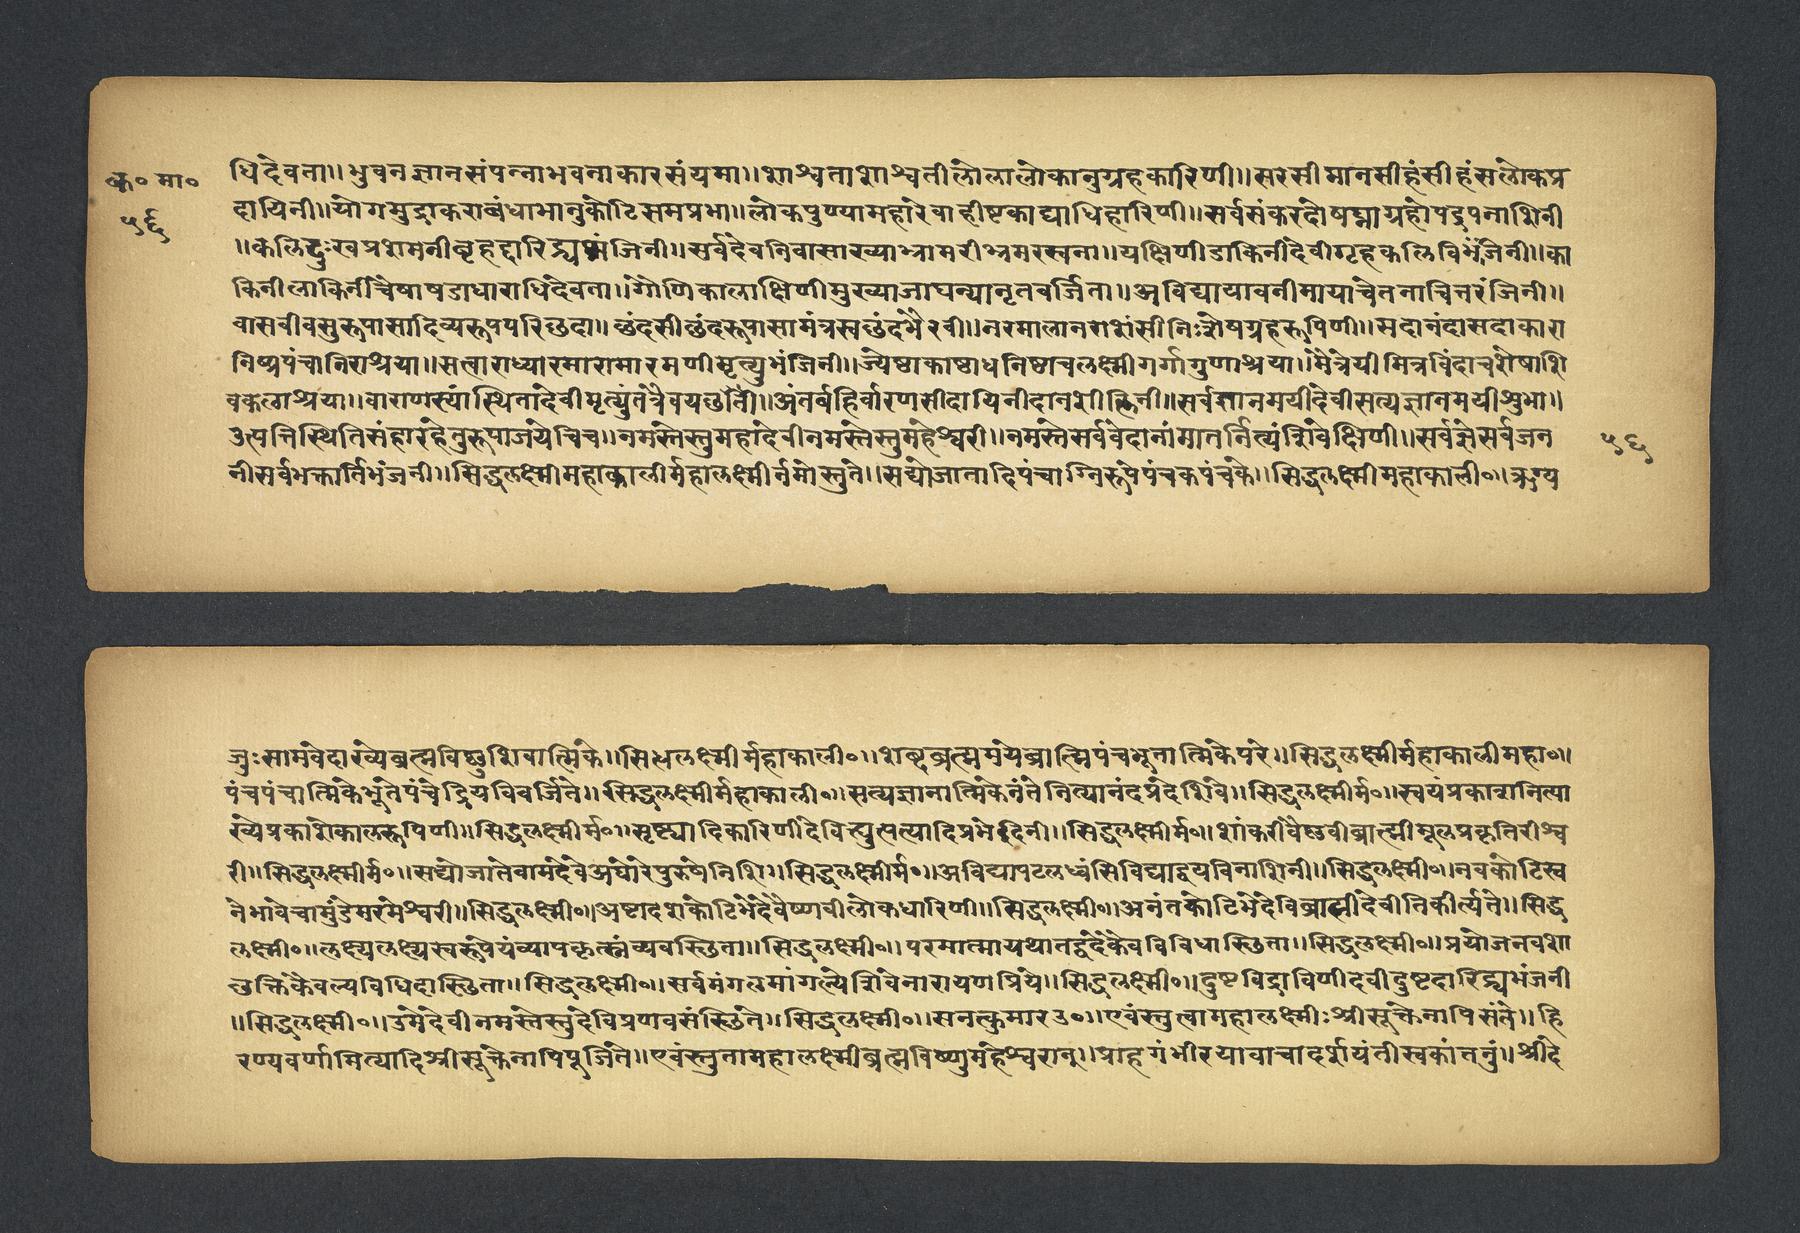 क॰ मा॰
५६
धिदेवता॥भुवनज्ञानसंपन्नाभवनाकारसंयमा॥शाश्वताशाश्वतीलोलालोकानुग्रहकारिणी॥सरसीमानसीहंसीहंसलोकप्र
दायिनी॥योगमुद्राकराबंधाभानुकोटिसमप्रभा॥लोकपुण्यामहारेवाहीष्टकाद्याधिहारिणी॥सर्वसंकरदोषघ्नाग्रहोपद्रपनाशिनी
॥कलिदुःखप्रशमनीबृहद्दारिद्र्यभंजिनी॥सर्वदेवनिवासाख्याभ्रामरीभ्रमरस्वना॥यक्षिणीडाकिनीदेवीगृहकलिविभंजिनी॥का
किनीलाकिनीचैषाषडाधाराधिदेवता॥गौणिकालाक्षिणीमुख्याजाघन्यानृतवर्जिता॥अविद्यायावनीमायाचेतनाचित्तरंजिनी॥
वासवीवसुरूपासादिव्यरूपपरिछदा॥छंदसीछंदरूपासामंत्रस्वछंदभैरवी॥नरमालानराशंसीनिःशेषग्रहरूपिणी॥सदानंदासदाकारा
निष्प्रपंचानिराश्रया॥सत्वाराध्यारमारामारमणीमृत्युभंजिनी॥ज्येष्ठाकाष्ठाधनिष्ठाचलक्ष्मीगर्गागुणाश्रया॥मैत्रेयीमित्रविंदाचशेषाशि
वकलाश्रया॥वाराणस्यांस्थितादेवीमृत्युंतत्रैवयछती॥अंतर्बहिर्वारणसीदायिनीदानशीलिनी॥सर्वज्ञानमयीदेवीसत्यज्ञानमयीशुभा॥
उत्पत्तिस्थितिसंहारहेतुरूपाजयेचिच॥नमस्तेस्तुमहादेवीनमस्तेस्तुमहेश्वरी॥नमस्तेसर्ववेदानांमातर्नित्यंशिवेक्षिणी॥सर्वज्ञेसर्वजन
५६
नीसर्वभक्तार्तिभंजनी॥सिद्धलक्ष्मीमहाकालीर्महालक्ष्मीर्नमोस्तुते॥सद्योजातादिपंचाग्निरूपेपंचकपंचके॥सिद्धलक्ष्मीमहाकाली॰॥ऋग्य
जुःसामवेदाख्येब्रह्मविष्णुशिवात्मिके॥सिधलक्ष्मीर्महाकाली॰॥शब्दब्रह्ममयेब्राह्मिपंचभूतात्मिकेपरे॥सिद्धलक्ष्मीर्महाकालीमहा॰॥
पंचपंचात्मिकेभूतेपंचेंद्रियविवर्जिते॥सिद्धलक्ष्मीर्महाकाली॰॥सत्यज्ञानात्मिकेनंतेनित्यानंदप्रदेशिवे॥सिद्धलक्ष्मीर्म॰॥स्वयंप्रकाशनित्या
ख्येप्रकाशेकालरूपिणी॥सिद्धलक्ष्मीर्म॰॥सृष्ट्यादिकारिणीदेवित्युत्पत्यादिप्रभेदिनी॥सिद्धलक्ष्मीर्म॰॥शांकरीवैष्णवीब्राह्मीमूलप्रकृतिरीश्व
री॥सिद्धलक्ष्मीर्म॰॥सद्योजातेवामदेवेअघोरेपुरुषेनिशि॥सिद्धलक्ष्मीर्म॰॥अविद्यापटलध्वंसिविद्याद्वयविनाशिनी॥सिद्धलक्ष्मी॰॥नवकोटिस्व
नेभावेचामुंडेमरमेश्वरी॥सिद्धलक्ष्मी॰॥अष्टादशकोटिभेदेवैष्णवीलोकधारिणी॥सिद्धलक्ष्मी॰॥अनंतकोटिभेदेविब्राह्मीदेवीतिकीर्त्यते॥सिद्ध
लक्ष्मी॰॥लक्ष्यलक्ष्यस्वरूपेयंव्यापकृत्स्नंव्यवस्छिता॥सिद्धलक्ष्मी॰॥परमात्मायथातद्वदेकेवविविधास्छिता॥सिद्धलक्ष्मी॰॥प्रयोजनवशा
द्भक्तिकैवल्यविधिदास्छिता॥सिद्धलक्ष्मी॰॥सर्वमंगलमांगल्येशिवेनारायणप्रिये॥सिद्धलक्ष्मी॰॥दुष्टविद्राविणीदेवीदुष्टदारिद्र्यभंजनी
॥सिद्धलक्ष्मी॰॥उमेदेवीनमस्तेस्तुदेविप्रणवसंस्छिते॥सिद्धलक्ष्मी॰॥सनत्कुमारउ॰॥एवंस्तुत्वामहालक्ष्मीःश्रीसूक्तेनापिसंते॥हि
रण्यवर्णामित्यादिश्रीसूक्तेनापिपूजिते॥एवंस्तुतामहालक्ष्मीब्रह्मविष्णुमहेश्वरान्॥प्राहगंभीरयावाचादर्शयंतीस्वकांतनुं॥श्रीदे